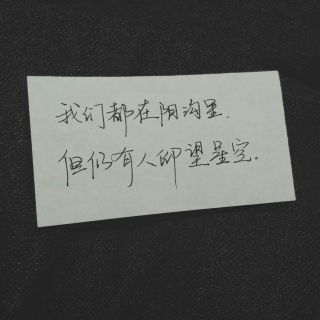 我们都在阴沟里.
但仍有人仰望星空.